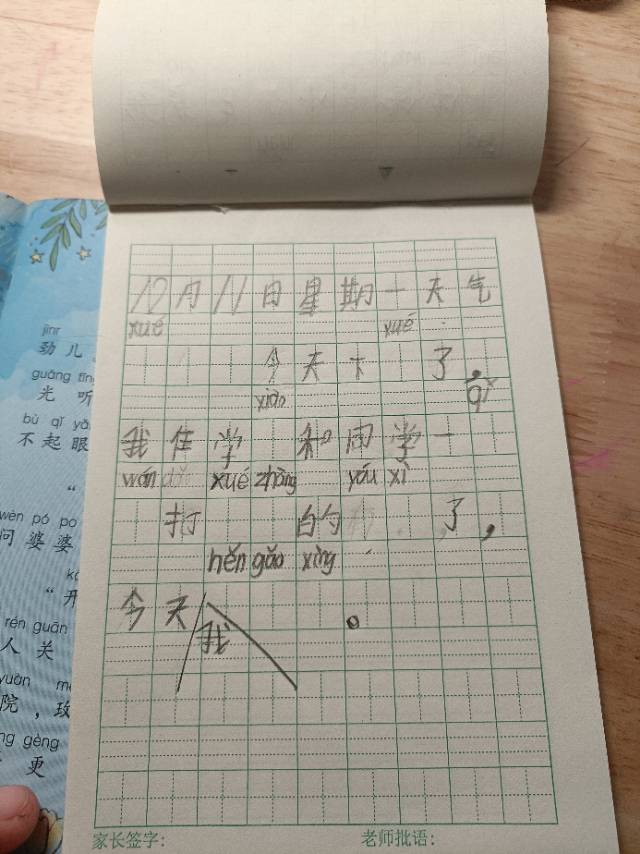 12月11日星期一天气
xué xué
今天下了，
xiào qǐ
我在学 和同学一
wán dǎ xué zhàng yóu xì
打 的 了，
hěn gāo xìng
今天我 。
家长签字: 老师批语:
jìnr
劲儿
guāng tīng
光听
bù qǐ
不起眼
“
wèn pó po
问婆婆
“开
rén guān
人关
yuàn
院，玫
gèng
更